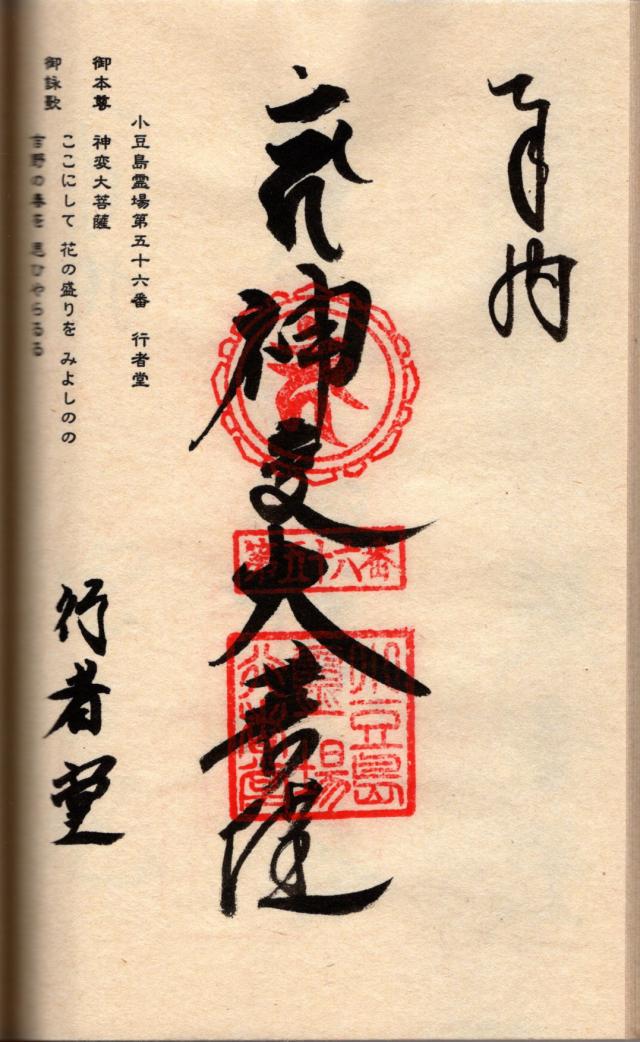 奉納
神変大菩薩
第五十六番
小豆島
霊場
行者堂
小豆島霊場第五十六番 行者堂
御本尊 神変大菩薩
ここにして 花の盛りを みよしのの
御詠歌
吉野の春を 思ひやらるる
行者堂